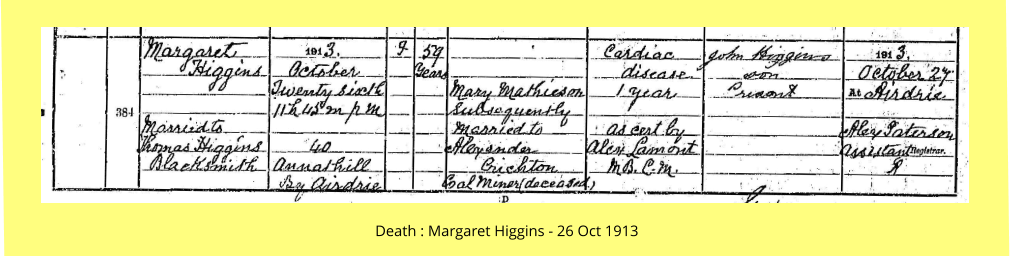 384
Margaret
Higgins
Married to
Thomas Higgins
Blacksmith
1913.
October
Twenty sixth
11h 45m p M
40
Annathill
By Airdrie
F
59
Years
Mary Mathieson
Subsequently
married to
Alexander
Crichton
Coal Miner (deceased)
Cardiac
disease
1 year
as cert by
Alex Lamont
M.B. C.M.
John Higgins
son
Present
1913.
October 27
At Airdrie
Alex Paterson
Assistant Registrar.
D
Death : Margaret Higgins - 26 Oct 1913